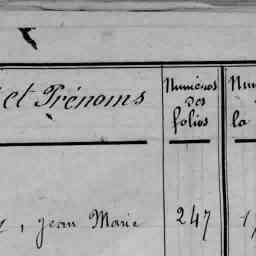 et Prénoms
Numéros
des
folios
la
, Jean Marie
247